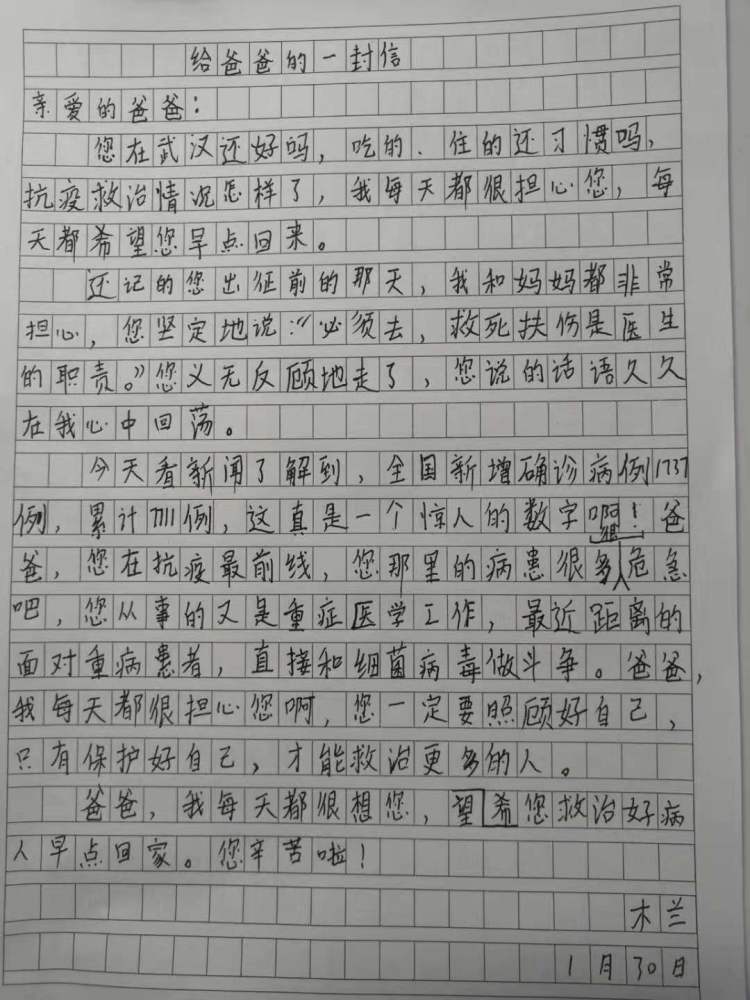 给爸爸的一封信
亲爱的爸爸：
您在武汉还好吗，吃的、住的还习惯吗，
抗疫救治情况怎样了，我每天都很担心您，每
天都希望您早点回来。
还记的您出征前的那天，我和妈妈都非常
担心，您坚定地说：“必须去，救死扶伤是医生
的职责。”您义无反顾地走了，您说的话语久久
在我心中回荡。
今天看新闻了解到，全国新增确诊病例1737
例，累计7711例，这真是一个惊人的数字啊！爸
爸，您在抗疫最前线，您那里的病患很多很危急
吧，您从事的又是重症医学工作，最近距离的
面对重病患者，直接和细菌病毒做斗争。爸爸，
我每天都很担心您啊，您一定要照顾好自己，
只有保护好自己，才能救治更多的人。
爸爸，我每天都很想您，望希您救治好病
人早点回家。您辛苦啦！
木兰
1月30日